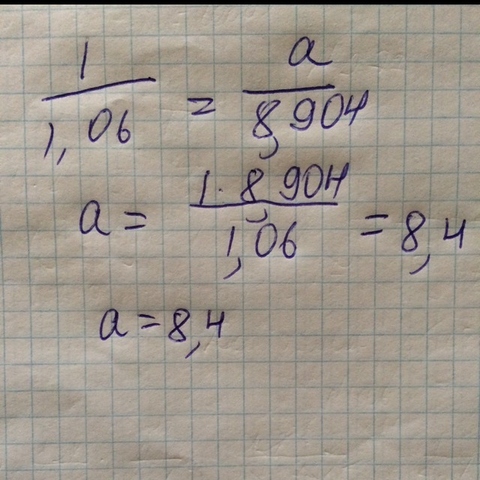 1/1,06 = a/8,904
a = 1·8,904/1,06 = 8,4
a = 8,4